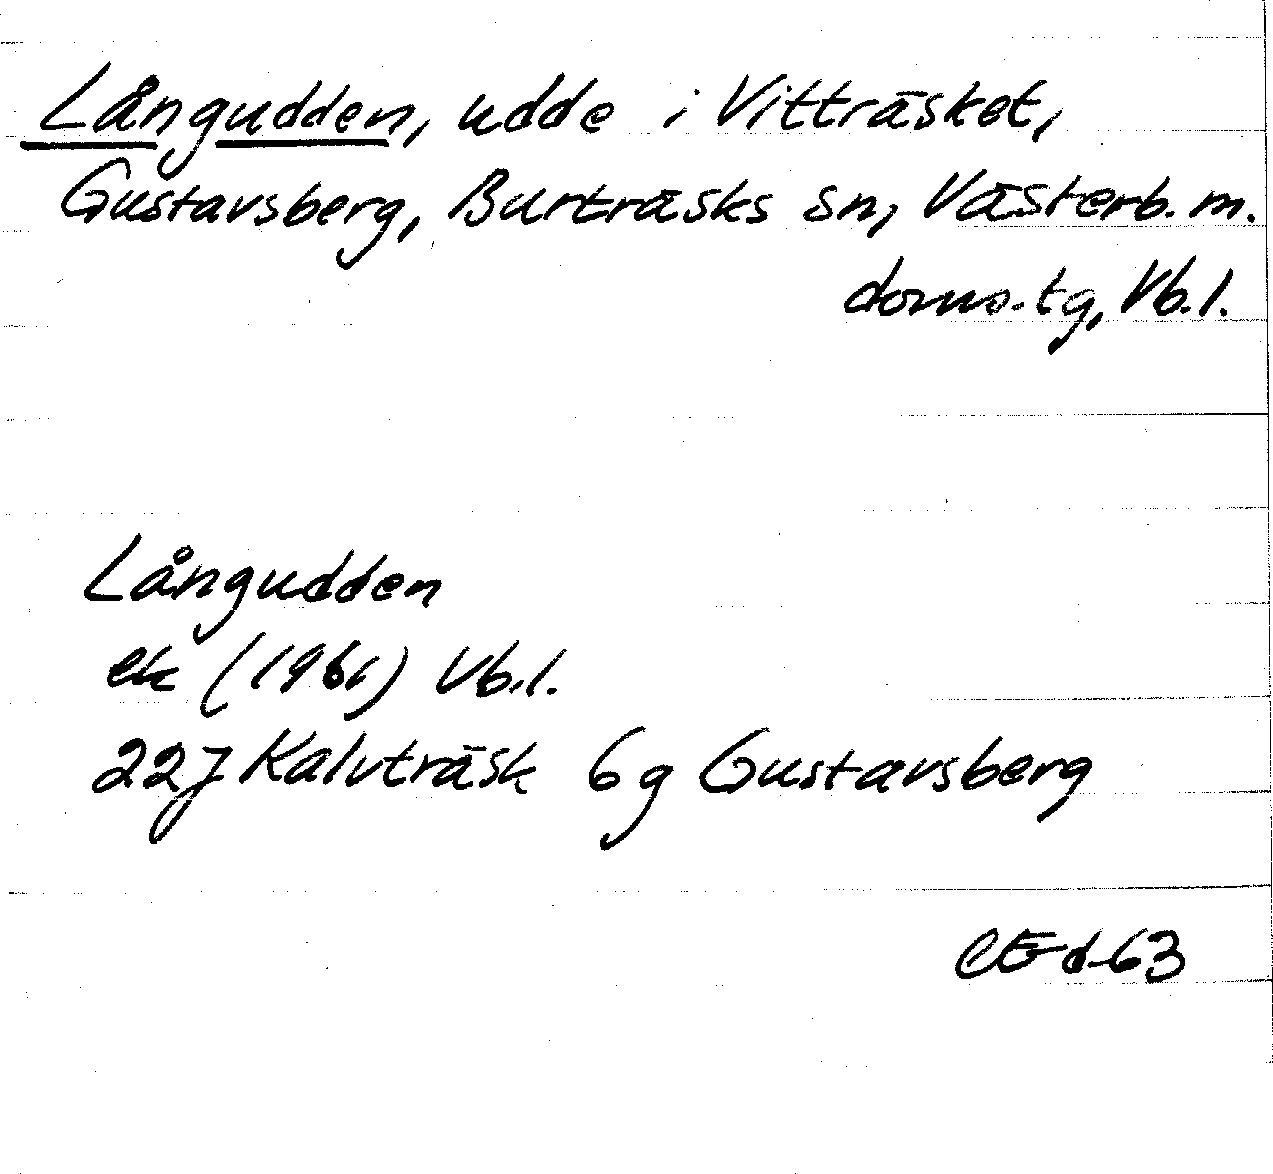 Långudden, udde i Vitträsket,
Gustavsberg, Burträsks sn, Västerb. m.
doms. tg, Vb. l.
Långudden
ek (1961) Vb. l.
22J Kalvträsk 6g Gustavsberg
63